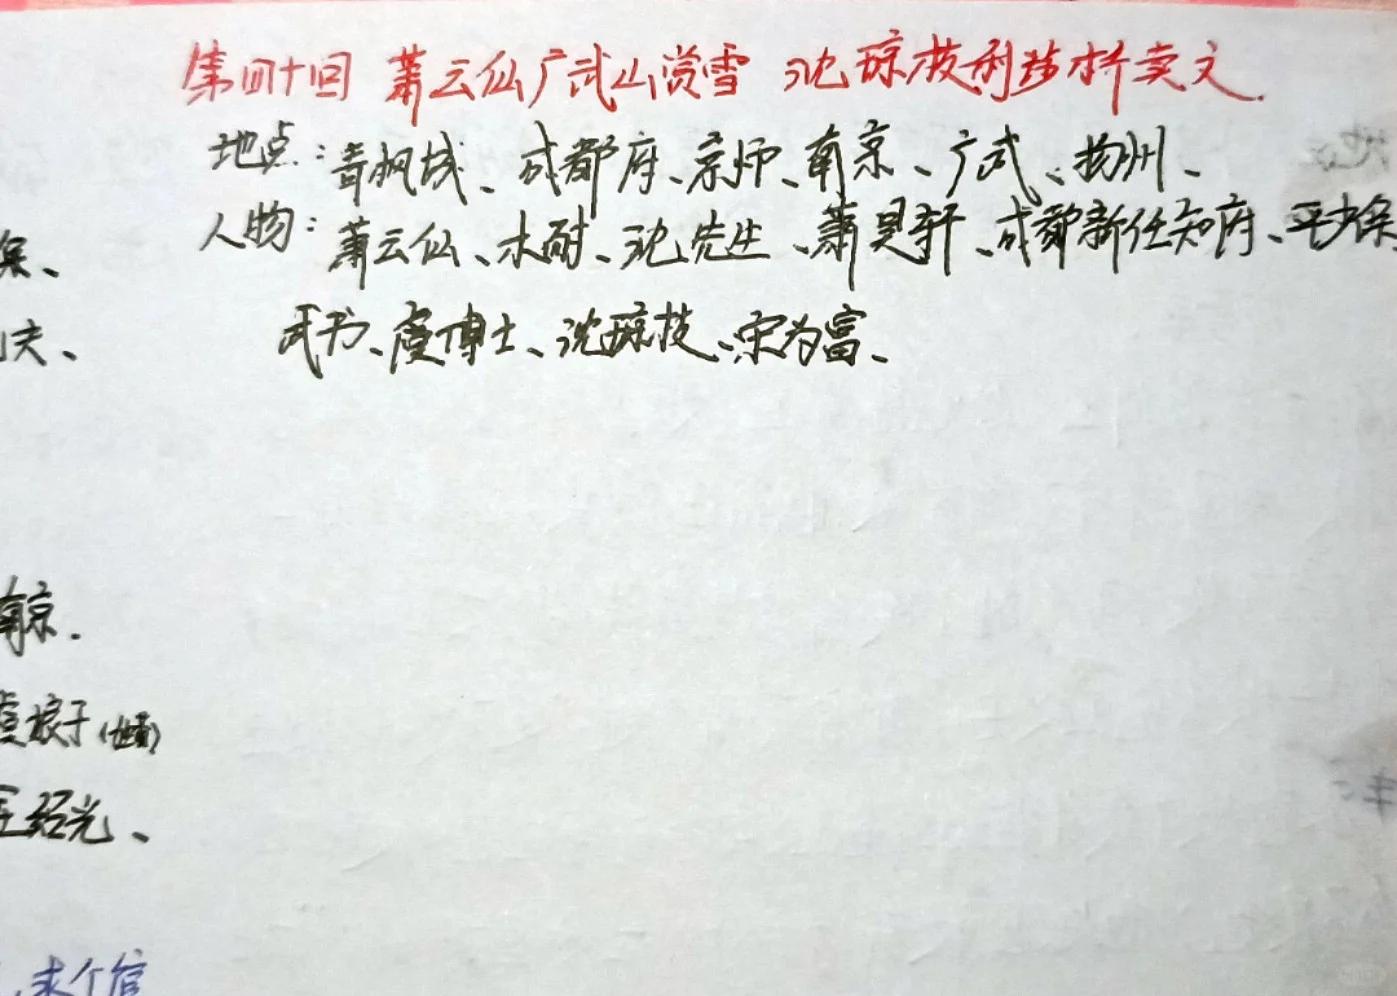 第四十回 萧云仙广武山赏雪 沈琼枝利涉桥卖文.
地点：青枫城、成都府、京师、南京、广武、扬州、
人物：萧云仙、木耐、沈先生、萧昊轩、成都新任知府、平少保
保、
武书、虞博士、沈琼枝、宋为富、
夫、
南京.
娘子
绍光、
求个信